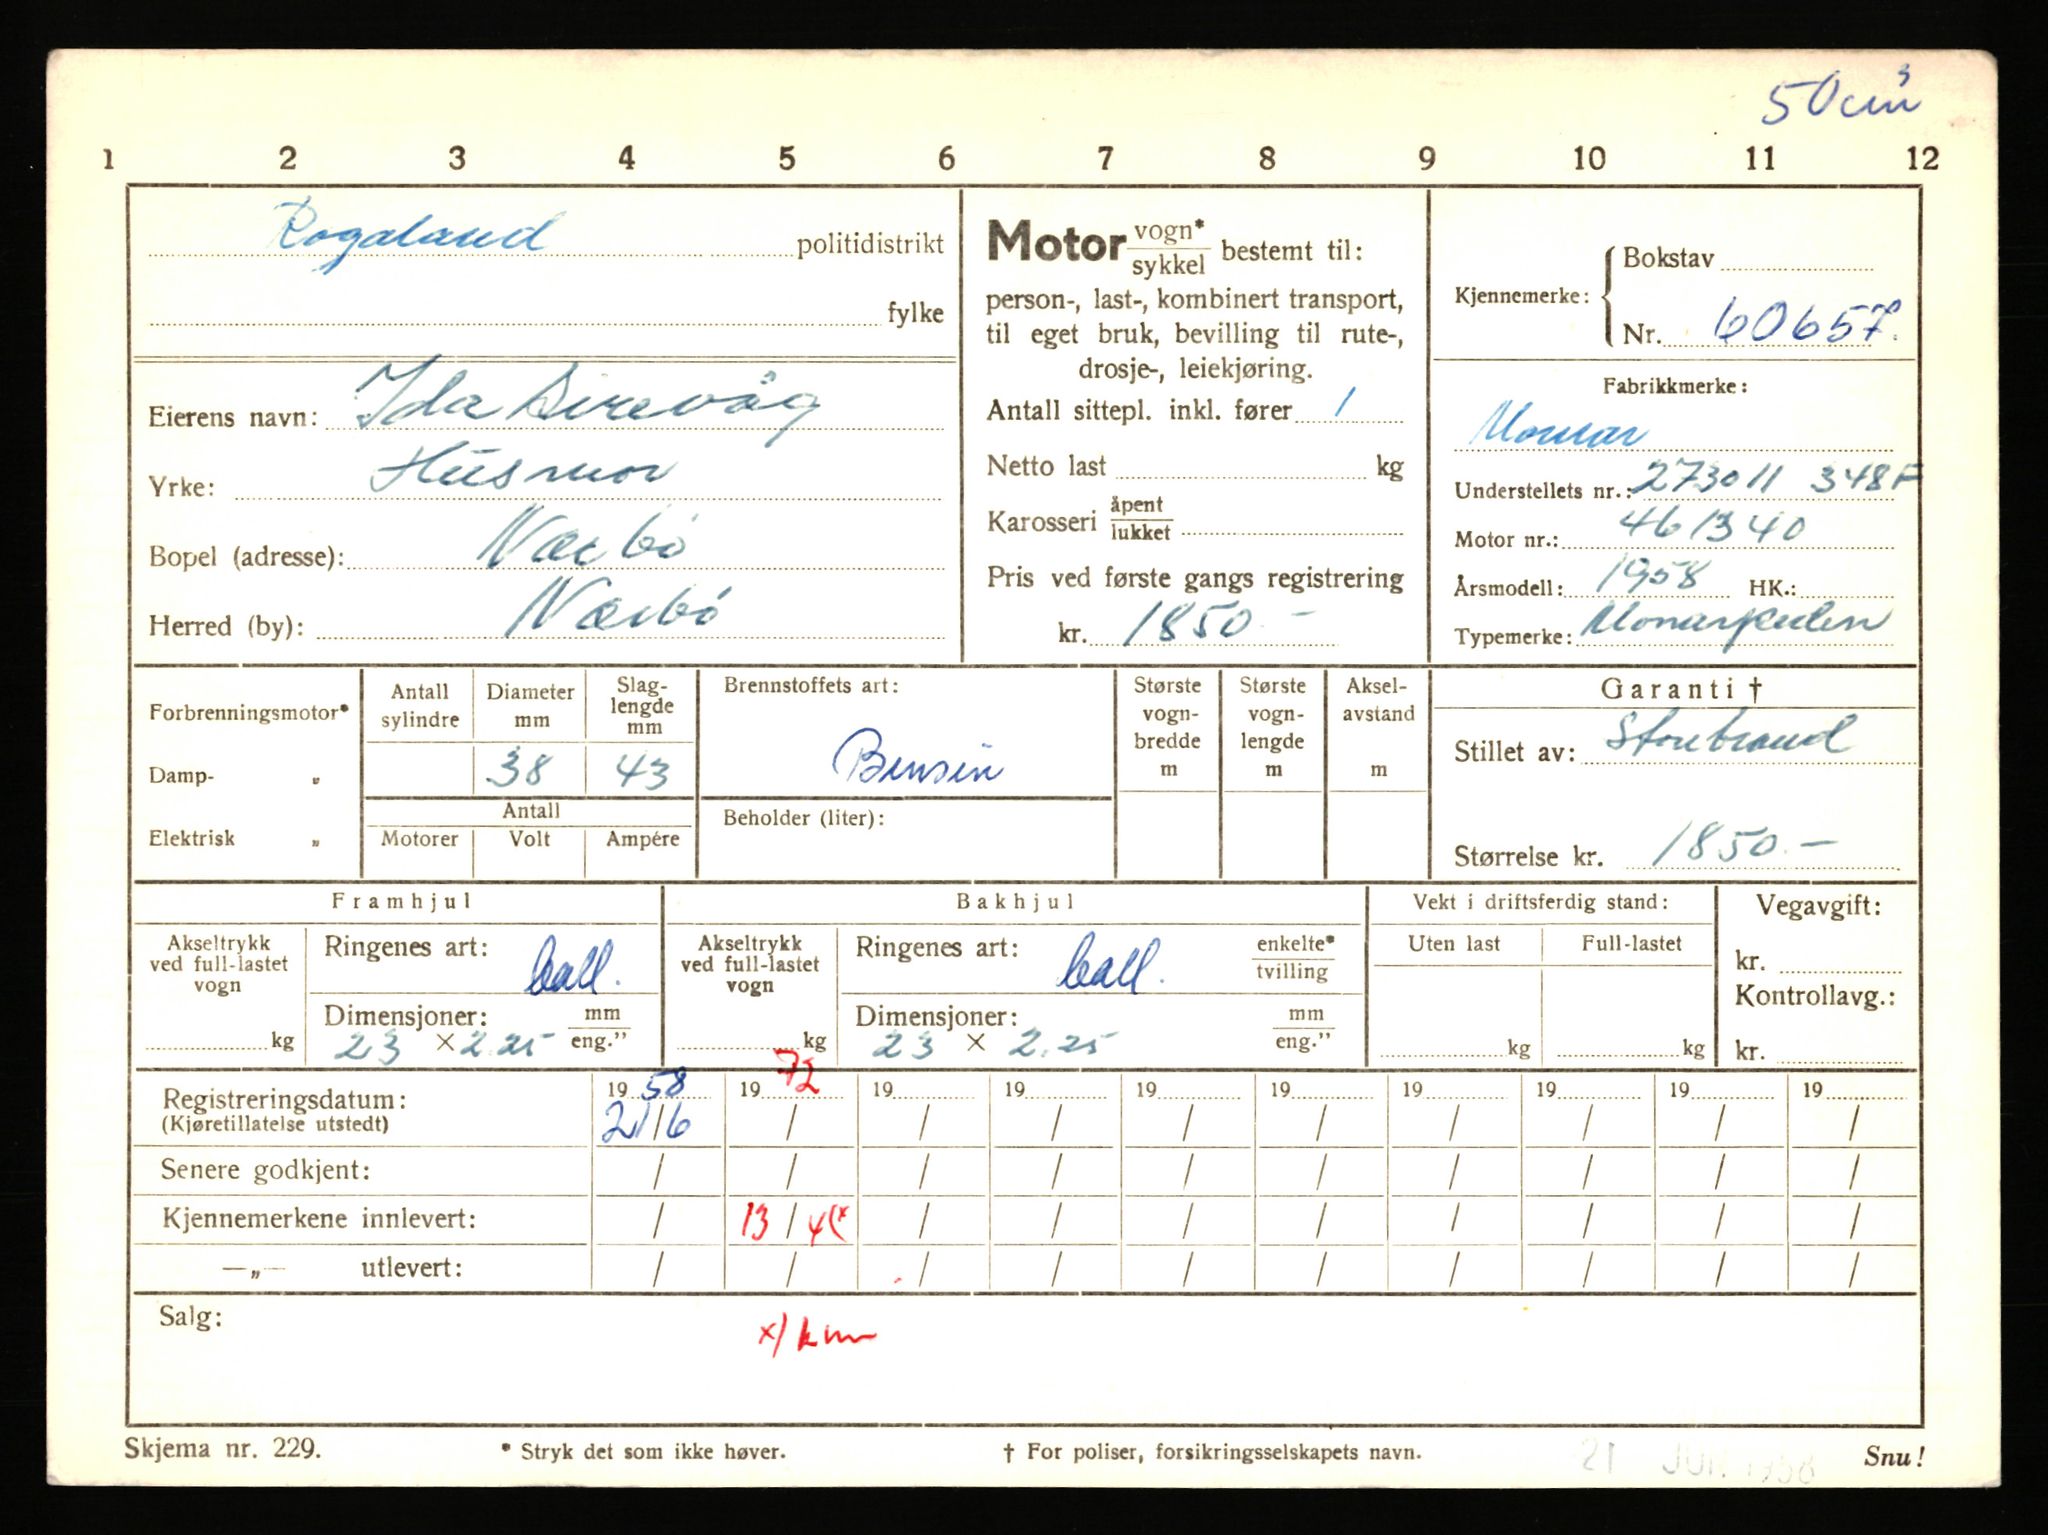 50 cm³
1 2 3 4 5 6 7 8 9 10 11 12
Rogaland politidistrikt
fylke
Eierens navn: Ida Sirevåg
Yrke: Husmor
Bopel (adresse): Nærbø
Herred (by): Nærbø
Motor vogn*/sykkel bestemt til:
person-, last-, kombinert transport,
til eget bruk, bevilling til rute-,
drosje-, leiekjøring.
Antall sittepl. inkl. fører 1
Netto last kg
Karosseri åpent/lukket
Pris ved første gangs registrering
kr. 1850.-
Kjennemerke: Bokstav
Nr. 60657.
Fabrikkmerke:
Monar
Understellets nr.: 273011 348F
Motor nr.: 461340
Årsmodell: 1958 HK.:
Typemerke: Monarpeden
Forbrenningsmotor*
Damp- „
Elektrisk „
Antall sylindre
Diameter mm
38
Slag-lengde mm
43
Antall
Motorer Volt Ampére
Brennstoffets art:
Bensin
Beholder (liter):
Største vogn-bredde m
Største vogn-lengde m
Aksel-avstand m
Garanti †
Stillet av: Storebrand
Størrelse kr. 1850.-
Framhjul
Akseltrykk ved full-lastet vogn
kg
Ringenes art: ball.
Dimensjoner: mm/eng."
23 × 2.25
Bakhjul
Akseltrykk ved full-lastet vogn
kg
Ringenes art: ball. enkelte*/tvilling
Dimensjoner: mm/eng."
23 × 2.25
Vekt i driftsferdig stand:
Uten last Full-lastet
kg kg
Vegavgift:
kr.
Kontrollavg.:
kr.
Registreringsdatum: 1958 1972 19 19 19 19 19 19 19 19
(Kjøretillatelse utstedt) 21/6 / / / / / / / / /
Senere godkjent: / / / / / / / / / /
Kjennemerkene innlevert: / 13/4(x / / / / / / / /
—„— utlevert: / / / / / / / / / /
Salg:
x)
Skjema nr. 229. * Stryk det som ikke høver. † For poliser, forsikringsselskapets navn. 21 JUNI 1958 Snu!